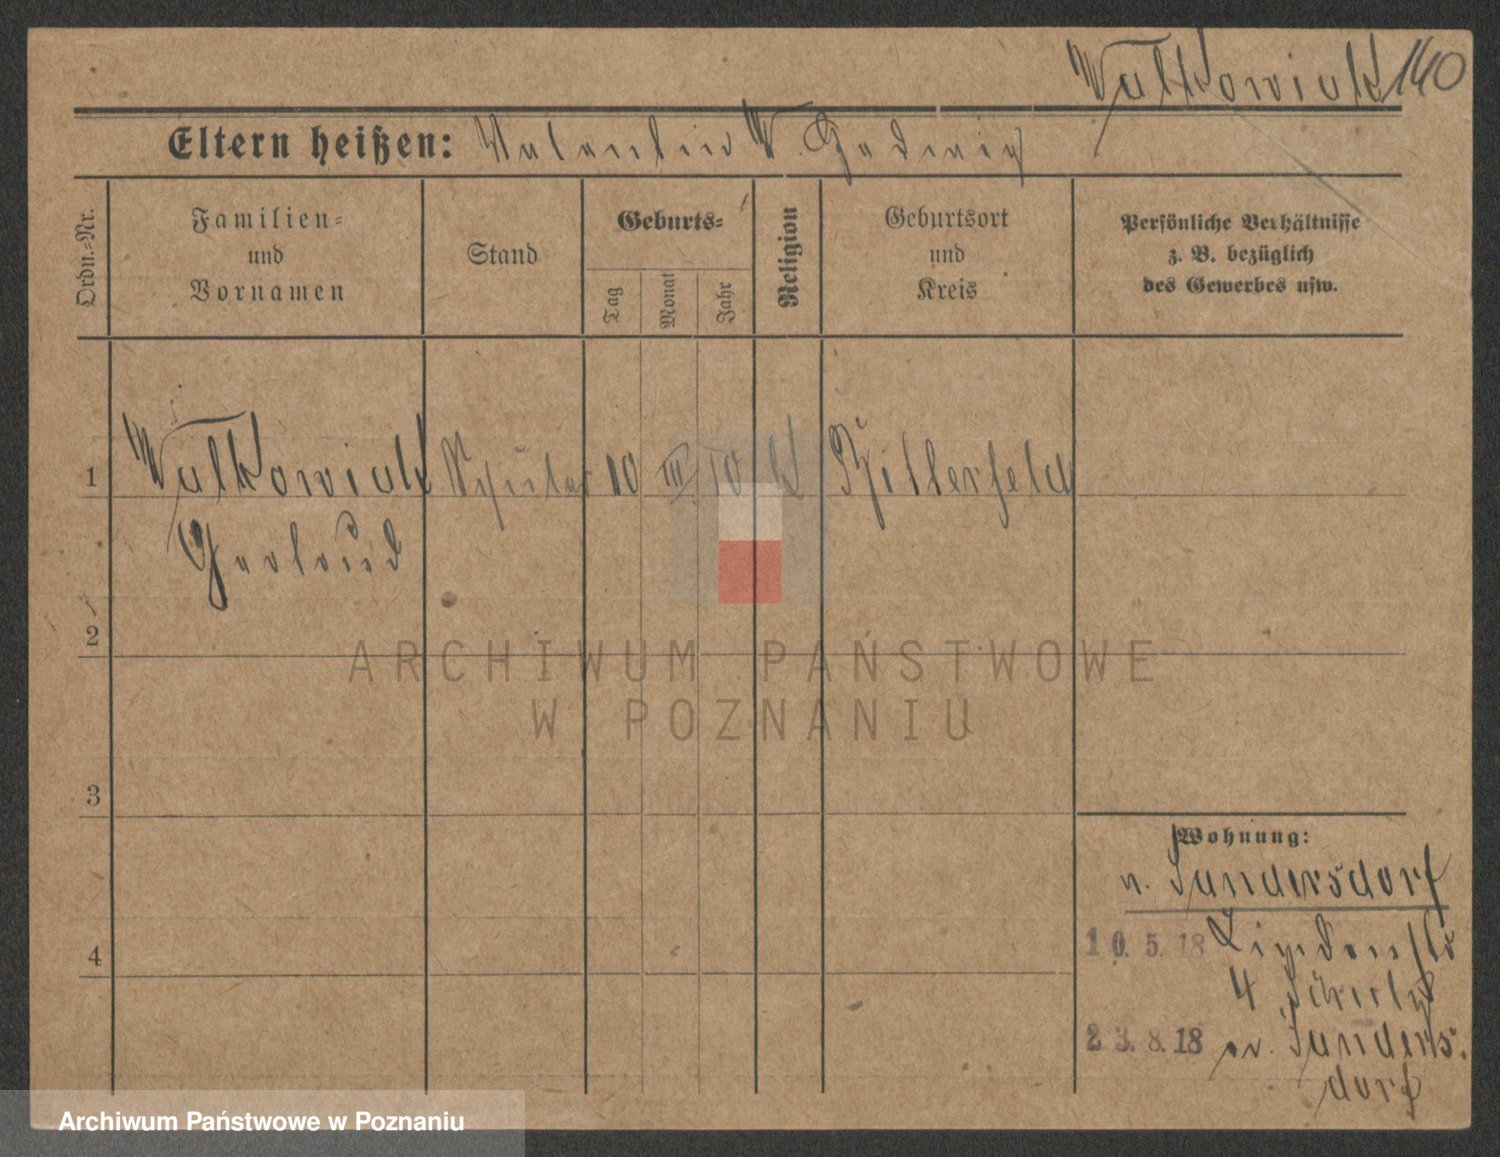 Walkowiak 140
Eltern heißen: Valentin W. Hedwig
Ordn.=Nr.
Familien=
und
Vornamen
Stand
Geburts=
Tag
Monat
Jahr
Religion
Geburtsort
und
Kreis
Persönliche Verhältnisse
z. B. bezüglich
des Gewerbes usw.
1 Walkowiak Schüler 10 III 10 k Bitterfeld
2
3
4
Wohnung:
n. Sandersdorf
10.5.18 Lindenstr
4
23.8.18 Sanders-
dorf
ARCHIWUM PAŃSTWOWE
W POZNANIU
Archiwum Państwowe w Poznaniu